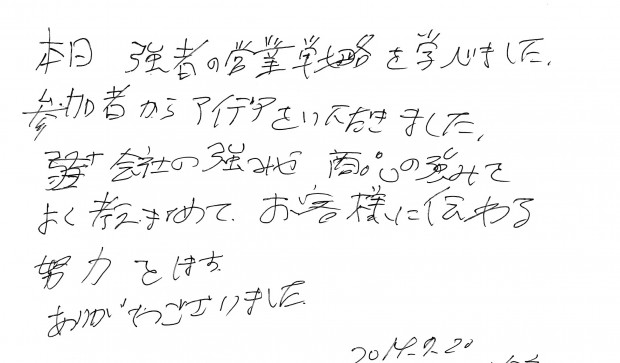 本日 強者の営業戦略を学びました。
参加者からアイデアをいただきました。
会社の強みを 商品の強みを
よく考え まとめて、お客様に伝わる
努力をします。
ありがとうございました。
2014.9.20